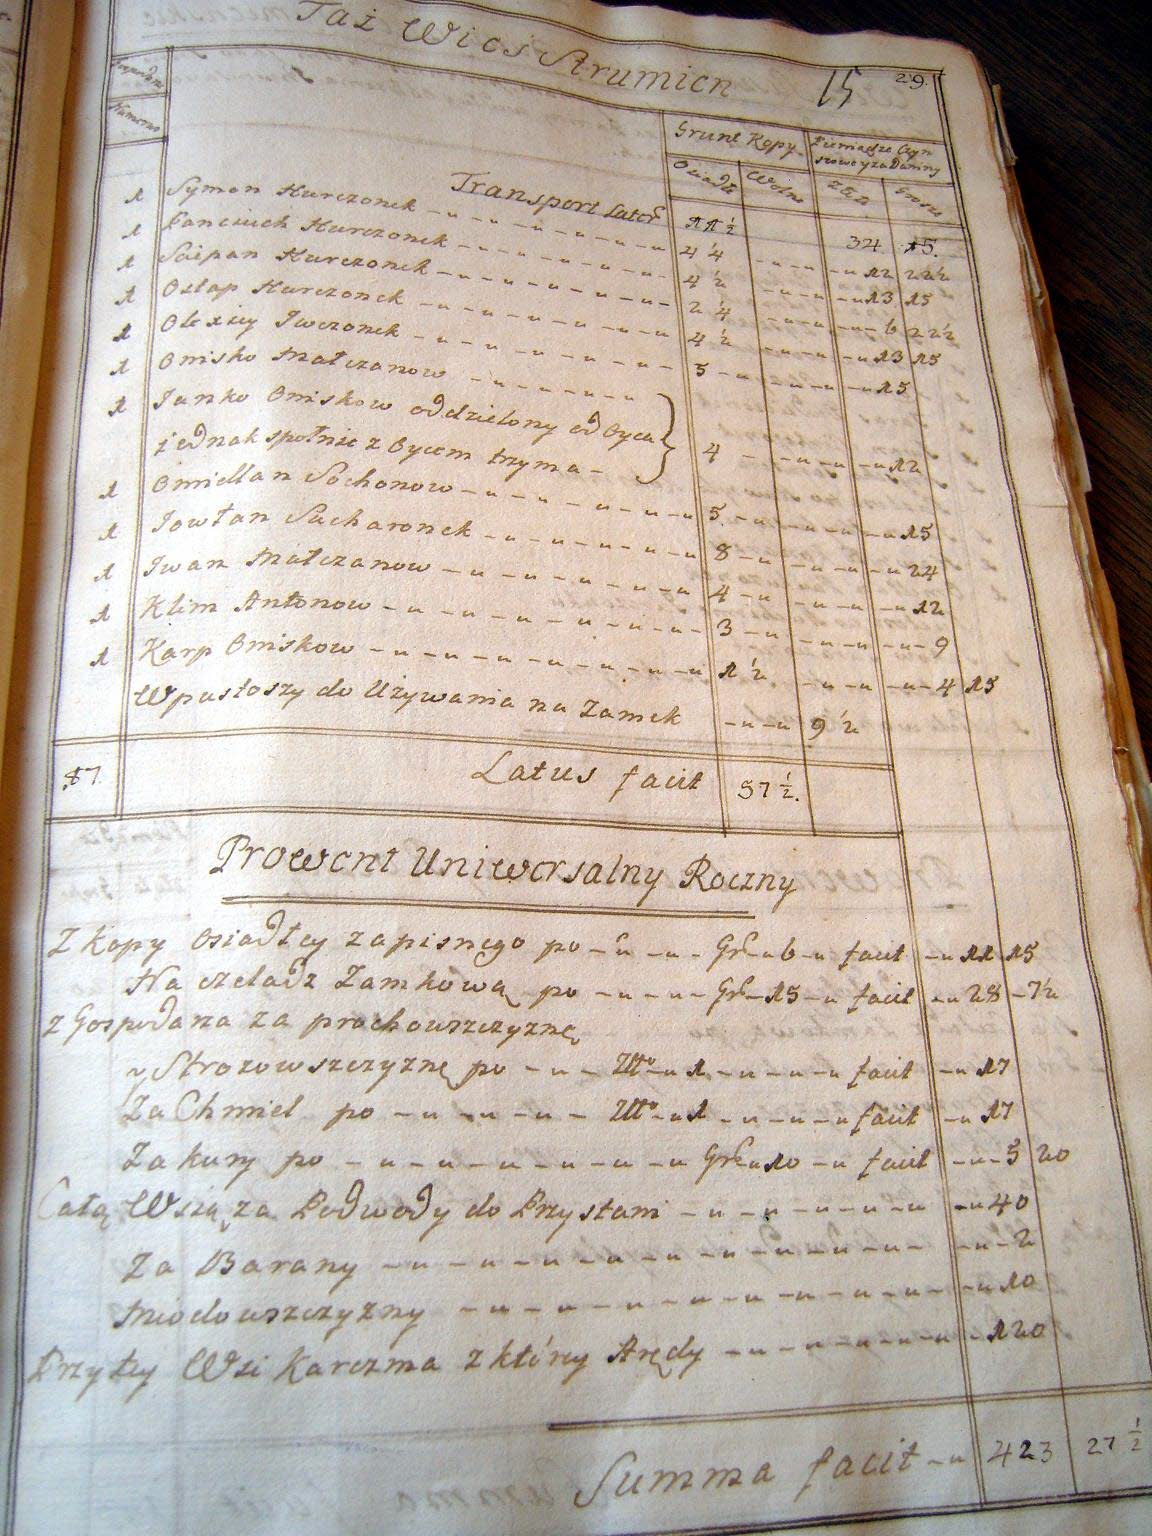 Taż Wies Strumien 15 29.
Numerus
Grunt Kopy. Pieniądze Czyn
szowe y za Daniny
Osiadłe Wolne Złł. Grosze
Transport Laterˢ 11 ½ 34 15.
1 Symon Kurczonek - u - u - u - u - u 4 ¼ - u - u - u 12 22 ½
1 Panciuch Kurczonek - u - u - u - u 4 ½ - u - u - u 13 15
1 Scipan Kurczonek - u - u - u - u 2 ¼ - u - u - u 6 22 ½
1 Ostap Kurczonek - u - u - u - u 4 ½ - u - u - u 13 15
1 Olexiey Iwczonek - u - u - u - u 5 - u - u - u 15
1 Onisko Małczanow - u - u - u - u
1 Janko Oniskow oddzielony od Oyca
jednak społnie z Oycem trzyma - 4 - u - u - u 12
1 Omiellan Sochonow - u - u - u - u 5. - u - u - u 15
1 Jowłan Sucharonek - u - u - u - u 8 - u - u - u 24
1 Iwan Małczanow - u - u - u - u 4 - u - u - u 12
1 Klim Antonow - u - u - u - u 3 - u - u - u 9
1 Karp Oniskow - u - u - u - u 1 ½ - u - u - u 4 15
W pustoszy do Używania na Zamek - u - u 9 ½
17. Latus facit 57 ½.
Prowent Uniwersalny Roczny
Z Kopy osiadłey zapisnego po - u - u - Gr - u 6 - u facit - u 11 15
Na czeladz Zamkową po - u - u - Gr - 15 - u facit - u 28 - 7 ½
z Gospodarza za prochowszczyznę
y Strozowszczyznę po - u - Złł - u 1 - u - u - u facit - u 17
Za Chmiel po - u - u - u - Złł - u 1 - u - u facit - u 17
Za kury po - u - u - u - u - u - u Gr u 10 - u facit - u - 5 20
Całą Wsią za Podwody do Przystani - u - u - u - u - u 40
Za Barany - u - u - u - u - u - u - u - u - 2
Miodowszczyzny - u - u - u - u - u - u - u 10
Przy tey Wsi Karczma z którey Arędy - u - u - u - u - 120
Summa facit - u 423 27 ½